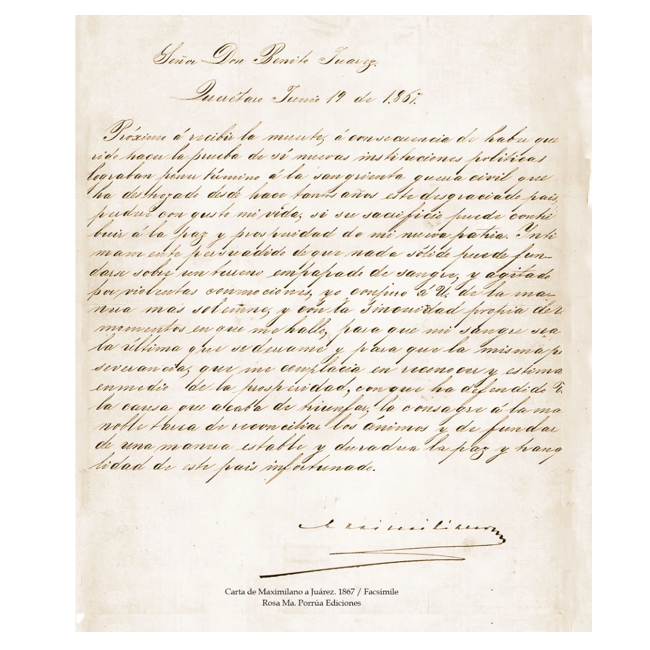 Señor Don Benito Juarez.
Querétaro Junio 19 de 1867.
Próximo á recibir la muerte, á consecuencia de haber que
rido hacer la prueba de si nuevas instituciones políticas
lograban poner término á la sangrienta guerra civil que
ha destrozado desde hace tantos años este desgraciado pais,
perderé con gusto mi vida, si su sacrificio puede contri
buir á la paz y prosperidad de mi nueva patria. Inti
mamente persuadido de que nada sólido puede fun-
darse sobre un terreno empapado de sangre, y agitado
por violentas conmociones, yo conjuro á U. de la ma-
nera mas solemne, y con la sinceridad propia de los
momentos en que me hallo, para que mi sangre sea
la última que se derrame y para que la misma pe
severancia, que me complacia en reconocer y estimar
en medio de la prosperidad, con que ha defendido U.
la causa que acaba de triunfar, la consagre á la mas
noble tarea de reconciliar los ánimos y de fundar
de una manera estable y duradera la paz y tranq
lidad de este pais infortunado.
Maximiliano
Carta de Maximilano a Juárez. 1867 / Facsimile
Rosa Ma. Porrúa Ediciones